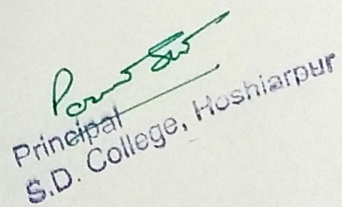 Principal
S.D. College, Hoshiarpur